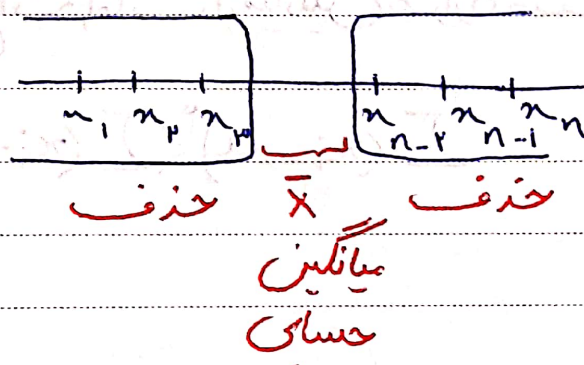 x₁ x₂ x₃ x n-۲ x n-1 x n
حذف x̄ حذف
میانگین
حسابی